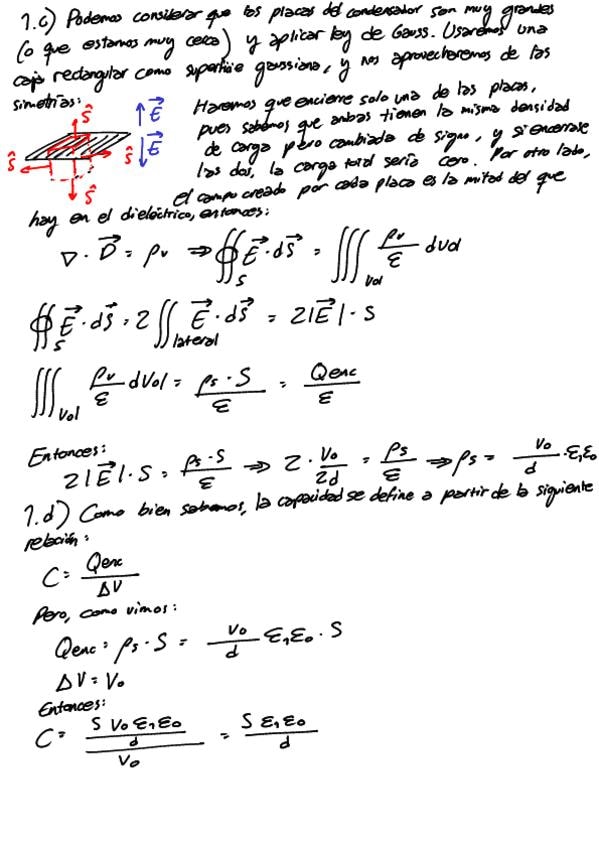 1.c) Podemos considerar que las placas del condensador son muy grandes
(o que estamos muy cerca) y aplicar ley de Gauss. Usaremos una
caja rectangular como superficie gaussiana, y nos aprovecharemos de las
simetrías:
Ŝ E⃗
Ŝ Ŝ E⃗
Ŝ
Haremos que encierre solo una de las placas,
pues sabemos que ambas tienen la misma densidad
de carga pero cambiada de signo, y si encerrase
las dos, la carga total sería cero. Por otro lado,
el campo creado por cada placa es la mitad del que
hay en el dieléctrico, entonces:
∇ · D⃗ = ρv ⇒ ∯_S E⃗ · dS⃗ = ∭_Vol ρv/ε dVol
∯_S E⃗ · dS⃗ = 2 ∬_lateral E⃗ · dS⃗ = 2|E⃗| · S
∭_Vol ρv/ε dVol = ρs · S/ε = Qenc/ε
Entonces:
2|E⃗| · S = ρs · S/ε ⇒ 2 · V₀/2d = ρs/ε ⇒ ρs = V₀/d · ε₁ε₀
1.d) Como bien sabemos, la capacidad se define a partir de la siguiente
relación:
C = Qenc/ΔV
Pero, como vimos:
Qenc = ρs · S = V₀/d ε₁ε₀ · S
ΔV = V₀
Entonces:
C = (S V₀ ε₁ε₀/d)/V₀ = S ε₁ε₀/d